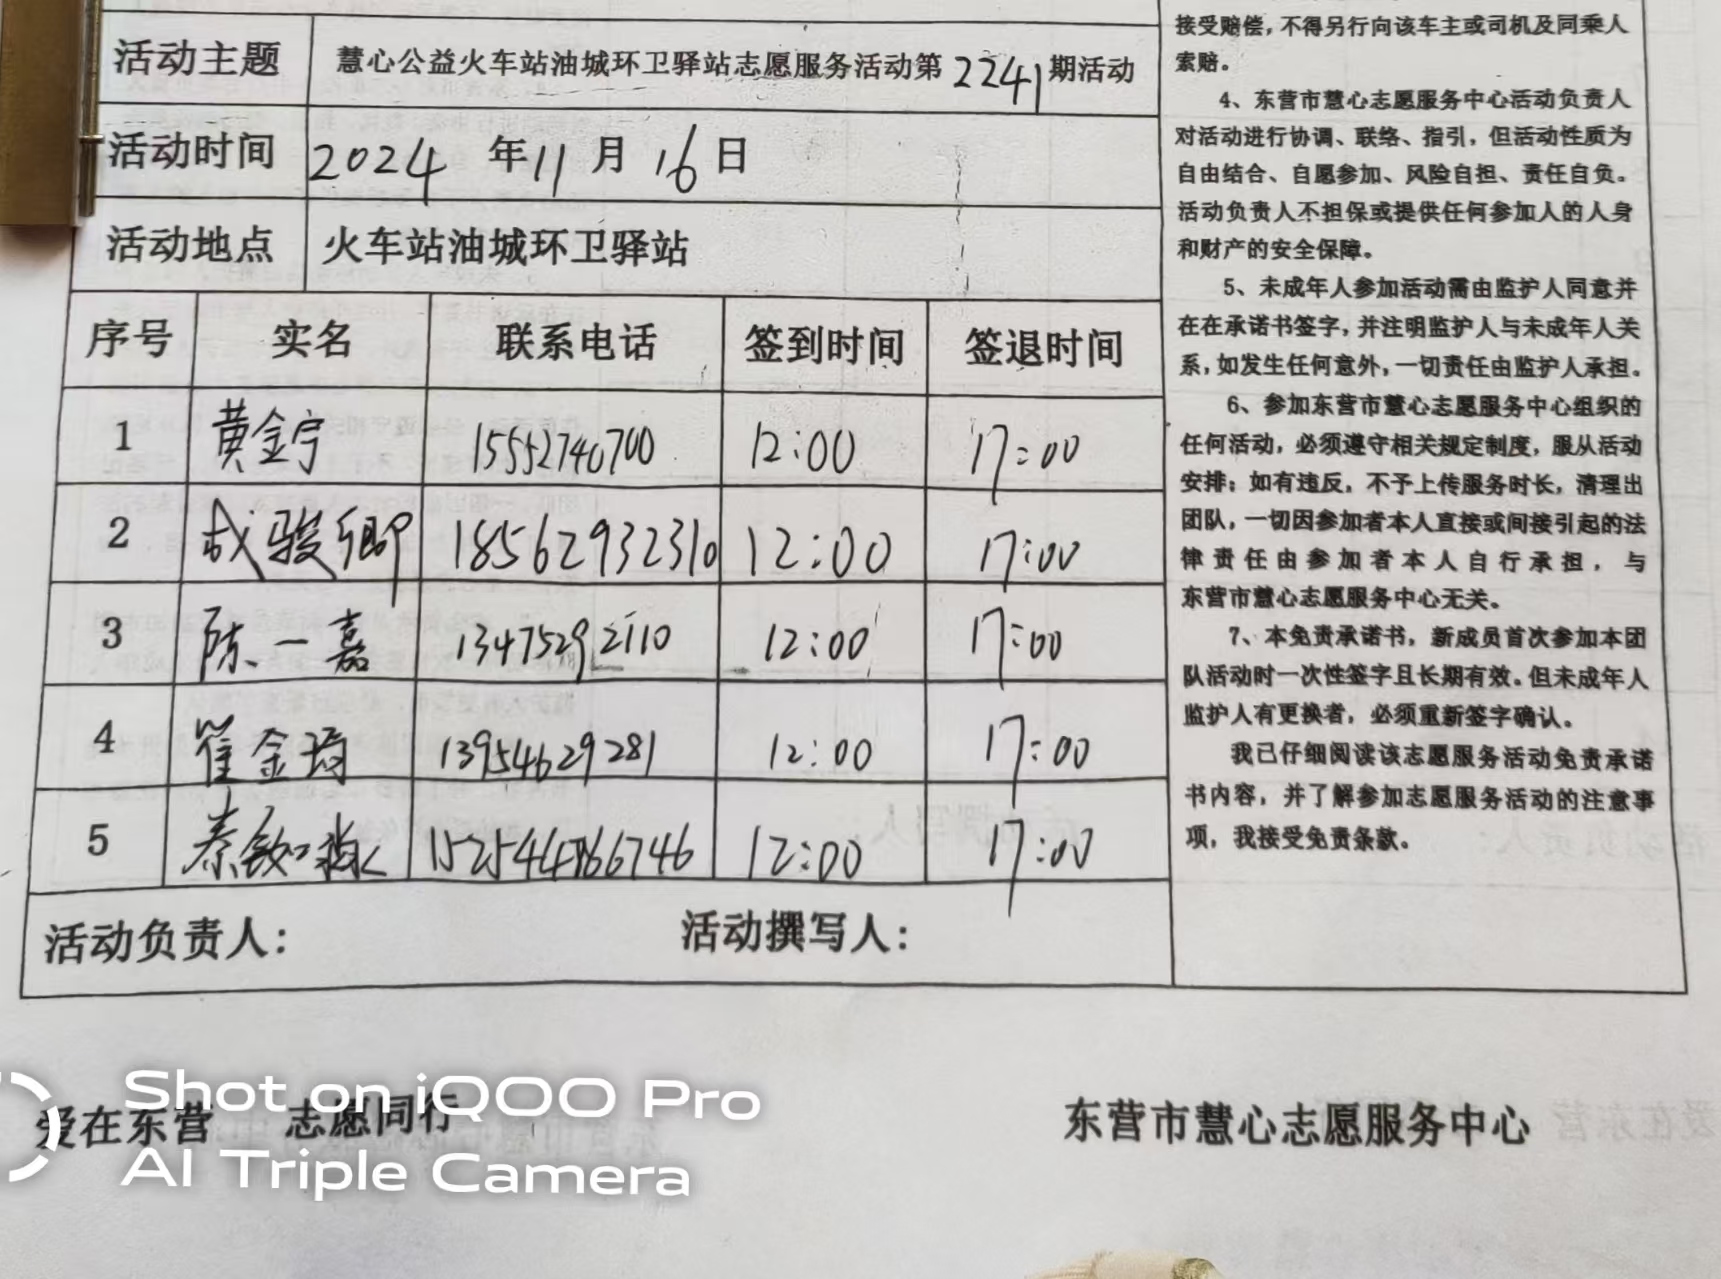 活动主题 慧心公益火车站油城环卫驿站志愿服务活动第2241期活动
活动时间 2024年11月16日
活动地点 火车站油城环卫驿站
序号 实名 联系电话 签到时间 签退时间
1 黄金宁 15552740700 12:00 17:00
2 成骏卿 18562932310 12:00 17:00
3 陈一嘉 13475292110 12:00 17:00
4 崔金琦 13954629281 12:00 17:00
5 秦 12:00 17:00
活动负责人: 活动撰写人:
接受赔偿,不得另行向该车主或司机及同乘人
索赔。
4、东营市慧心志愿服务中心活动负责人
对活动进行协调、联络、指引,但活动性质为
自由结合、自愿参加、风险自担、责任自负。
活动负责人不担保或提供任何参加人的人身
和财产的安全保障。
5、未成年人参加活动需由监护人同意并
在在承诺书签字,并注明监护人与未成年人关
系,如发生任何意外,一切责任由监护人承担。
6、参加东营市慧心志愿服务中心组织的
任何活动,必须遵守相关规定制度,服从活动
安排;如有违反,不予上传服务时长,清理出
团队,一切因参加者本人直接或间接引起的法
律责任由参加者本人自行承担,与
东营市慧心志愿服务中心无关。
7、本免责承诺书,新成员首次参加本团
队活动时一次性签字且长期有效。但未成年人
监护人有更换者,必须重新签字确认。
我已仔细阅读该志愿服务活动免责承诺
书内容,并了解参加志愿服务活动的注意事
项,我接受免责条款。
爱在东营 志愿同行 东营市慧心志愿服务中心
Shot on iQOO Pro
AI Triple Camera